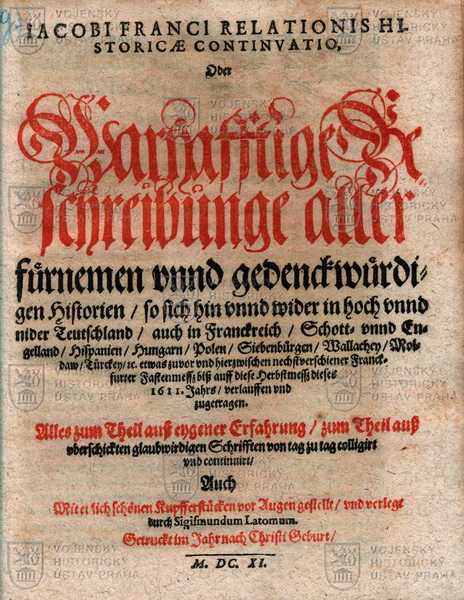 IACOBI FRANCI RELATIONIS HI-
STORICÆ CONTINVATIO,
Oder
Warhafftige Be
schreibunge aller
fürnemen vnnd gedenckwürdi-
gen Historien / so sich hin vnnd wider in hoch vnnd
nider Teutschland / auch in Franckreich / Schott- vnnd En-
gelland / Hispanien / Hungarn / Polen / Siebenbürgen / Wallachey / Mol-
daw / Türckey / ꝛc. etwas zuvor vnd hierzwischen nechstverschiener Franck-
furter Fastenmess / biß auff diese Herbstmess dieses
1611. Jahrs / verlauffen vnd
zugetragen.
Alles zum Theil auß eygener Erfahrung / zum Theil auß
vberschickten glaubwirdigen Schrifften von tag zu tag colligirt
vnd continuirt /
Auch
Mit etlich schönen Kupfferstücken vor Augen gestellt / vnd verlegt
durch Sigismundum Latomum.
Getruckt im Jahr nach Christi Geburt /
M. DC. XI.
VOJENSKÝ
HISTORICKÝ
ÚSTAV PRAHA